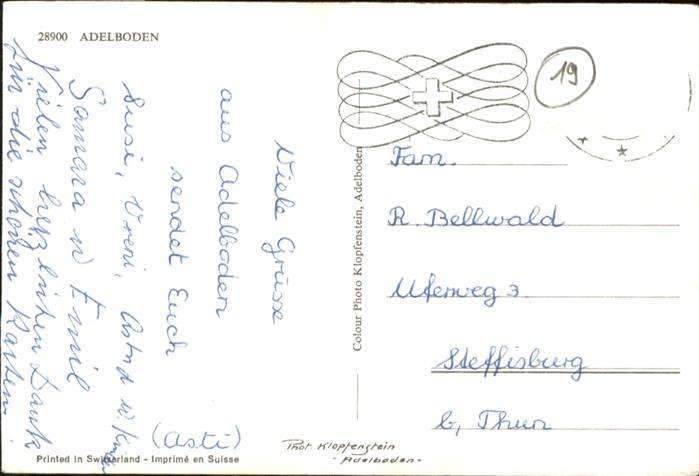 28900 ADELBODEN
19
Viele Grüsse
aus Adelboden
sendet Euch
Susi, Vreni, Astrid u.
Samara u Emil
(Asti)
Vielen herzlichen Dank
für die schönen Karten.
Colour Photo Klopfenstein, Adelboden
Fam.
R. Bellwald
Uferweg 3
Steffisburg
b, Thun
Phot. Klopfenstein
- Adelboden -
Printed in Switzerland - Imprimé en Suisse